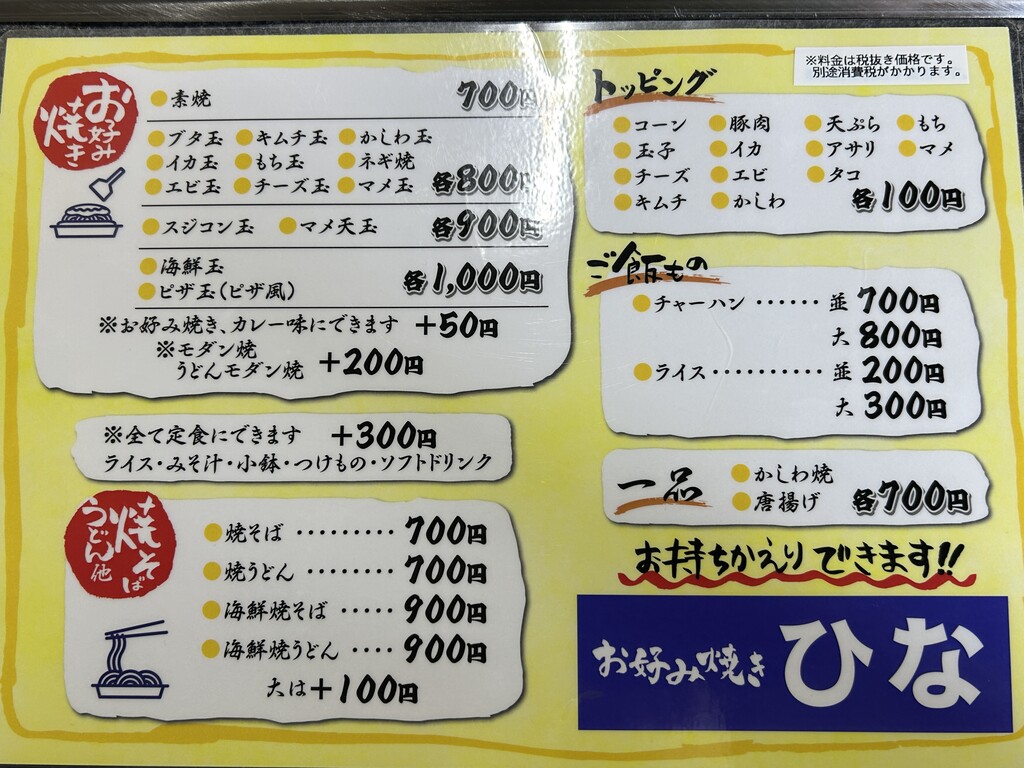 お好み焼き
素焼 700円
ブタ玉 キムチ玉 かしわ玉
イカ玉 もち玉 ネギ焼
エビ玉 チーズ玉 マメ玉 各800円
スジコン玉 マメ天玉 各900円
海鮮玉
ピザ玉(ピザ風) 各1,000円
※お好み焼き、カレー味にできます +50円
※モダン焼
うどんモダン焼 +200円
※全て定食にできます +300円
ライス・みそ汁・小鉢・つけもの・ソフトドリンク
焼そば
うどん他
焼そば ········· 700円
焼うどん ········ 700円
海鮮焼そば ····· 900円
海鮮焼うどん ···· 900円
大は+100円
※料金は税抜き価格です。
別途消費税がかかります。
トッピング
コーン 豚肉 天ぷら もち
玉子 イカ アサリ マメ
チーズ エビ タコ
キムチ かしわ 各100円
ご飯もの
チャーハン ······ 並 700円
大 800円
ライス ·········· 並 200円
大 300円
一品
かしわ焼
唐揚げ 各700円
お持ちかえりできます!!
お好み焼き ひな